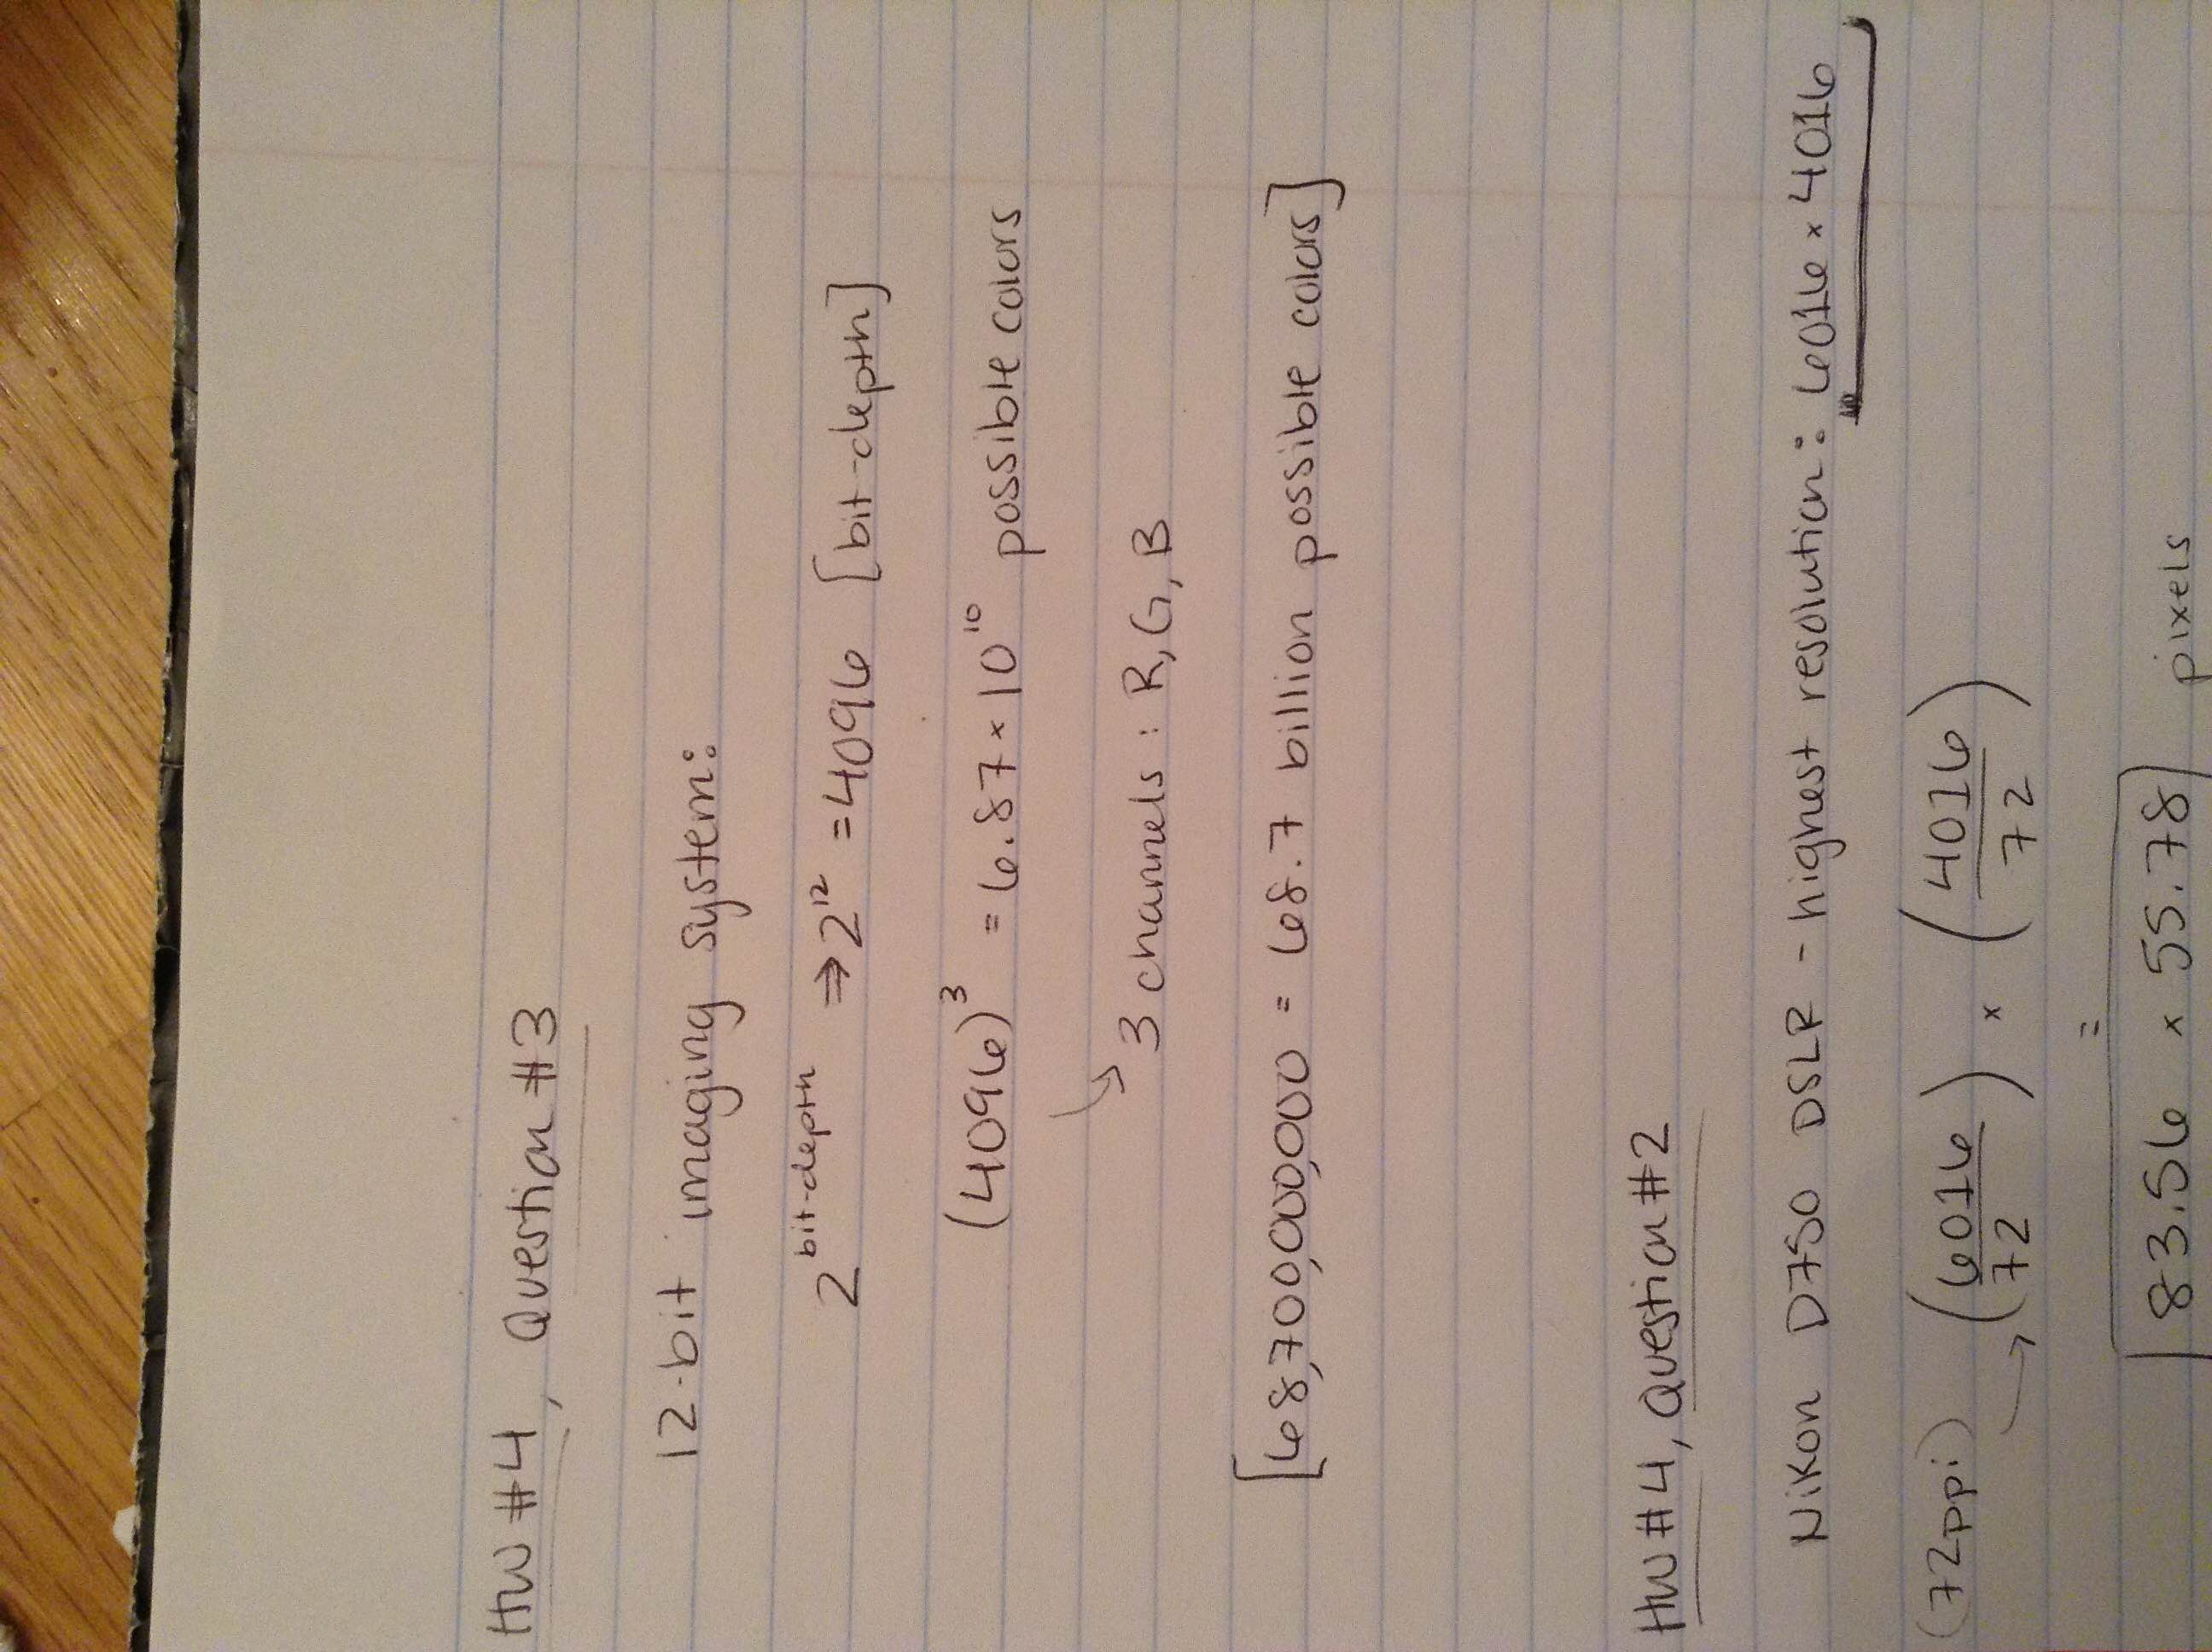 HW #4, Question #3
12-bit imaging system:
2^bit-depth ⇒ 2^12 = 4096 [bit-depth]
(4096)^3 = 6.87 × 10^10 possible colors
↳ 3 channels : R, G, B
[68,700,000,000 = 68.7 billion possible colors]
HW #4, Question #2
Nikon D750 DSLR - highest resolution: 6016 × 4016
(72ppi) → (6016/72) × (4016/72)
=
83.56 × 55.78 pixels